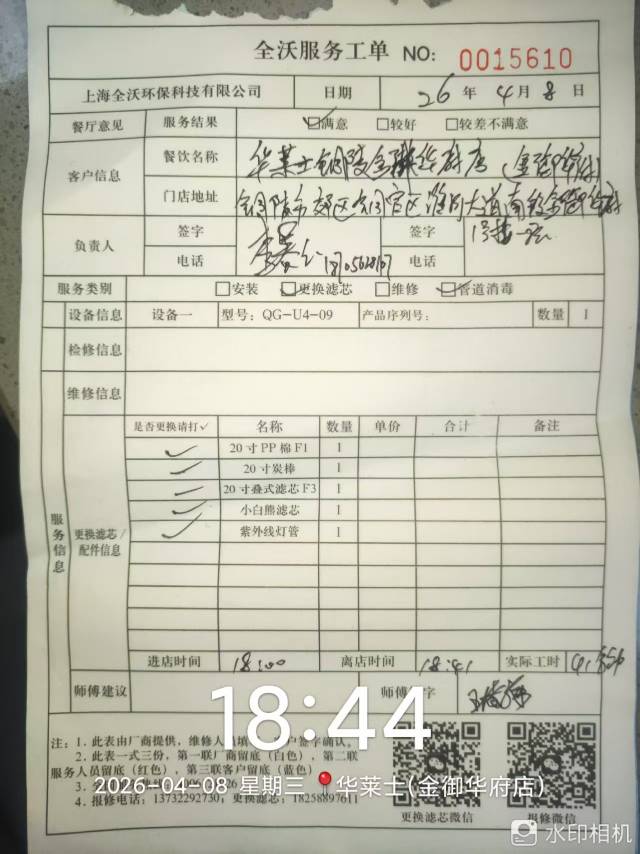 全沃服务工单 NO: 0015610
上海全沃环保科技有限公司 日期 26 年 4 月 8 日
餐厅意见 服务结果 ☑满意 □较好 □较差不满意
客户信息 餐饮名称 华莱士铜陵金御华府店
门店地址 铜陵市郊区
1号楼
负责人 签字 签字
电话 电话
服务类别 □安装 ☑更换滤芯 □维修 ☑管道消毒
设备信息 设备一 型号: QG-U4-09 产品序列号: 数量 1
检修信息
维修信息
服务信息
更换滤芯/配件信息
是否更换请打✓ 名称 数量 单价 合计 备注
✓ 20寸PP棉F1 1
✓ 20寸炭棒 1
✓ 20寸叠式滤芯F3 1
✓ 小白熊滤芯 1
✓ 紫外线灯管 1
进店时间 18:00 离店时间 18:41 实际工时 41
师傅建议 师傅 字
18:44
注: 1. 此表由厂商提供, 维修人员填 户签字确认。
2. 此表一式三份, 第一联厂商留底 (白色), 第二联
服务人员留底 (红色), 第三联客户留底 (蓝色)
2026-04-08 星期三 华莱士(金御华府店)
4. 报修电话: 13732292730; 更换滤芯: 18258897611
更换滤芯微信 报修微信
水印相机